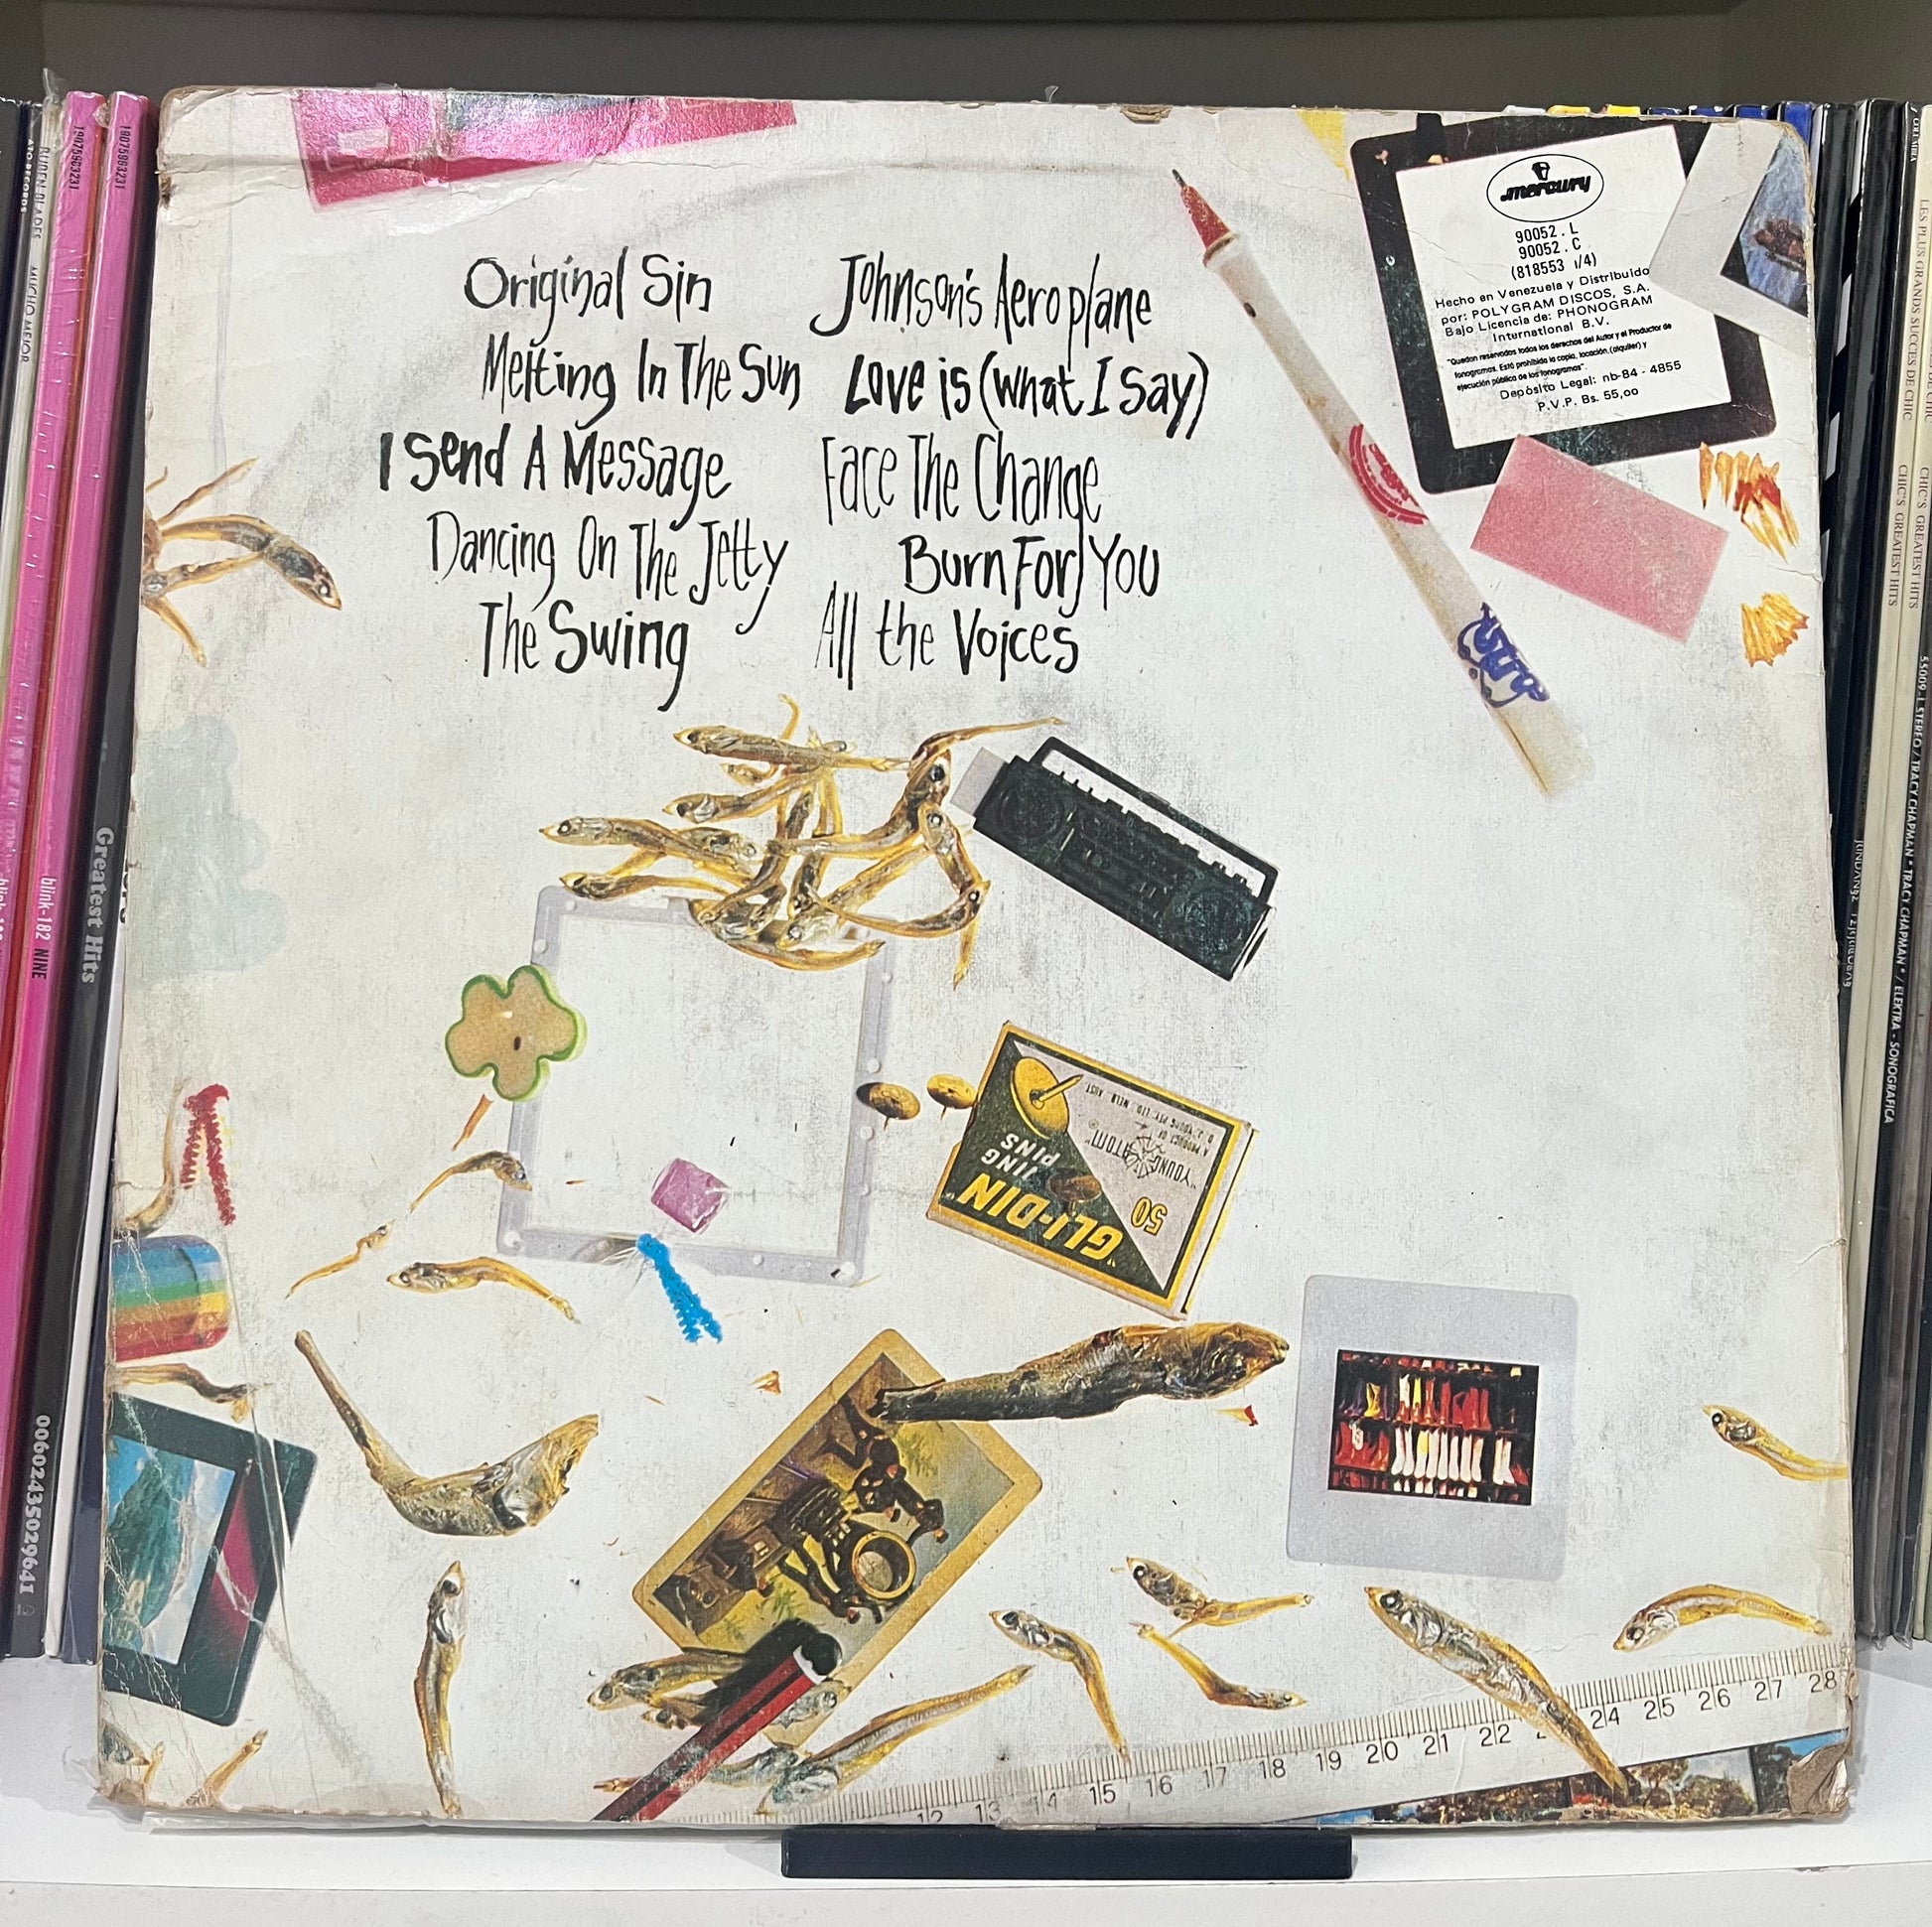 Original Sin
Melting In The Sun
I Send A Message
Dancing On The Jetty
The Swing
Johnson's Aeroplane
Love is (what I Say)
Face The Change
Burn For You
All the Voices
mercury
90052 . L
90052 . C
(818553 1/4)
Hecho en Venezuela y Distribuido
por: POLYGRAM DISCOS, S.A.
Bajo Licencia de: PHONOGRAM
International B.V.
"Quedan reservados todos los derechos del Autor y el Productor de
fonogramas. Está prohibida la copia, locación, (alquiler) y
ejecución pública de los fonogramas"
Depósito Legal: nb-84 - 4855
P.V.P. Bs. 55,oo
"GLI-DIN
PINS
50
"YOUNG ATOM"
A PRODUCT OF
12 13 14 15 16 17 18 19 20 21 22 24 25 26 27 28
RUBEN BLADES
MUCHO MEJOR
ATO RECORDS
19075963231
19075963231
blink-182 NINE
Greatest Hits
00602435029641
COLUMBIA
LES PLUS GRANDS SUCCES DE CHIC
CHIC'S GREATEST HITS
CHIC'S GREATEST HITS
55009-L STEREO / TRACY CHAPMAN " TRACY CHAPMAN " / ELEKTRA - SONOGRAFICA